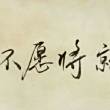 不愿将就